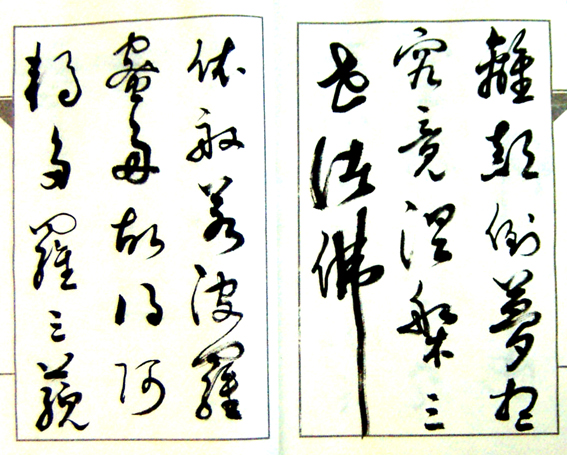 離顛倒夢想
究竟涅槃三
世諸佛
依般若波羅
蜜多故得阿
耨多羅三藐